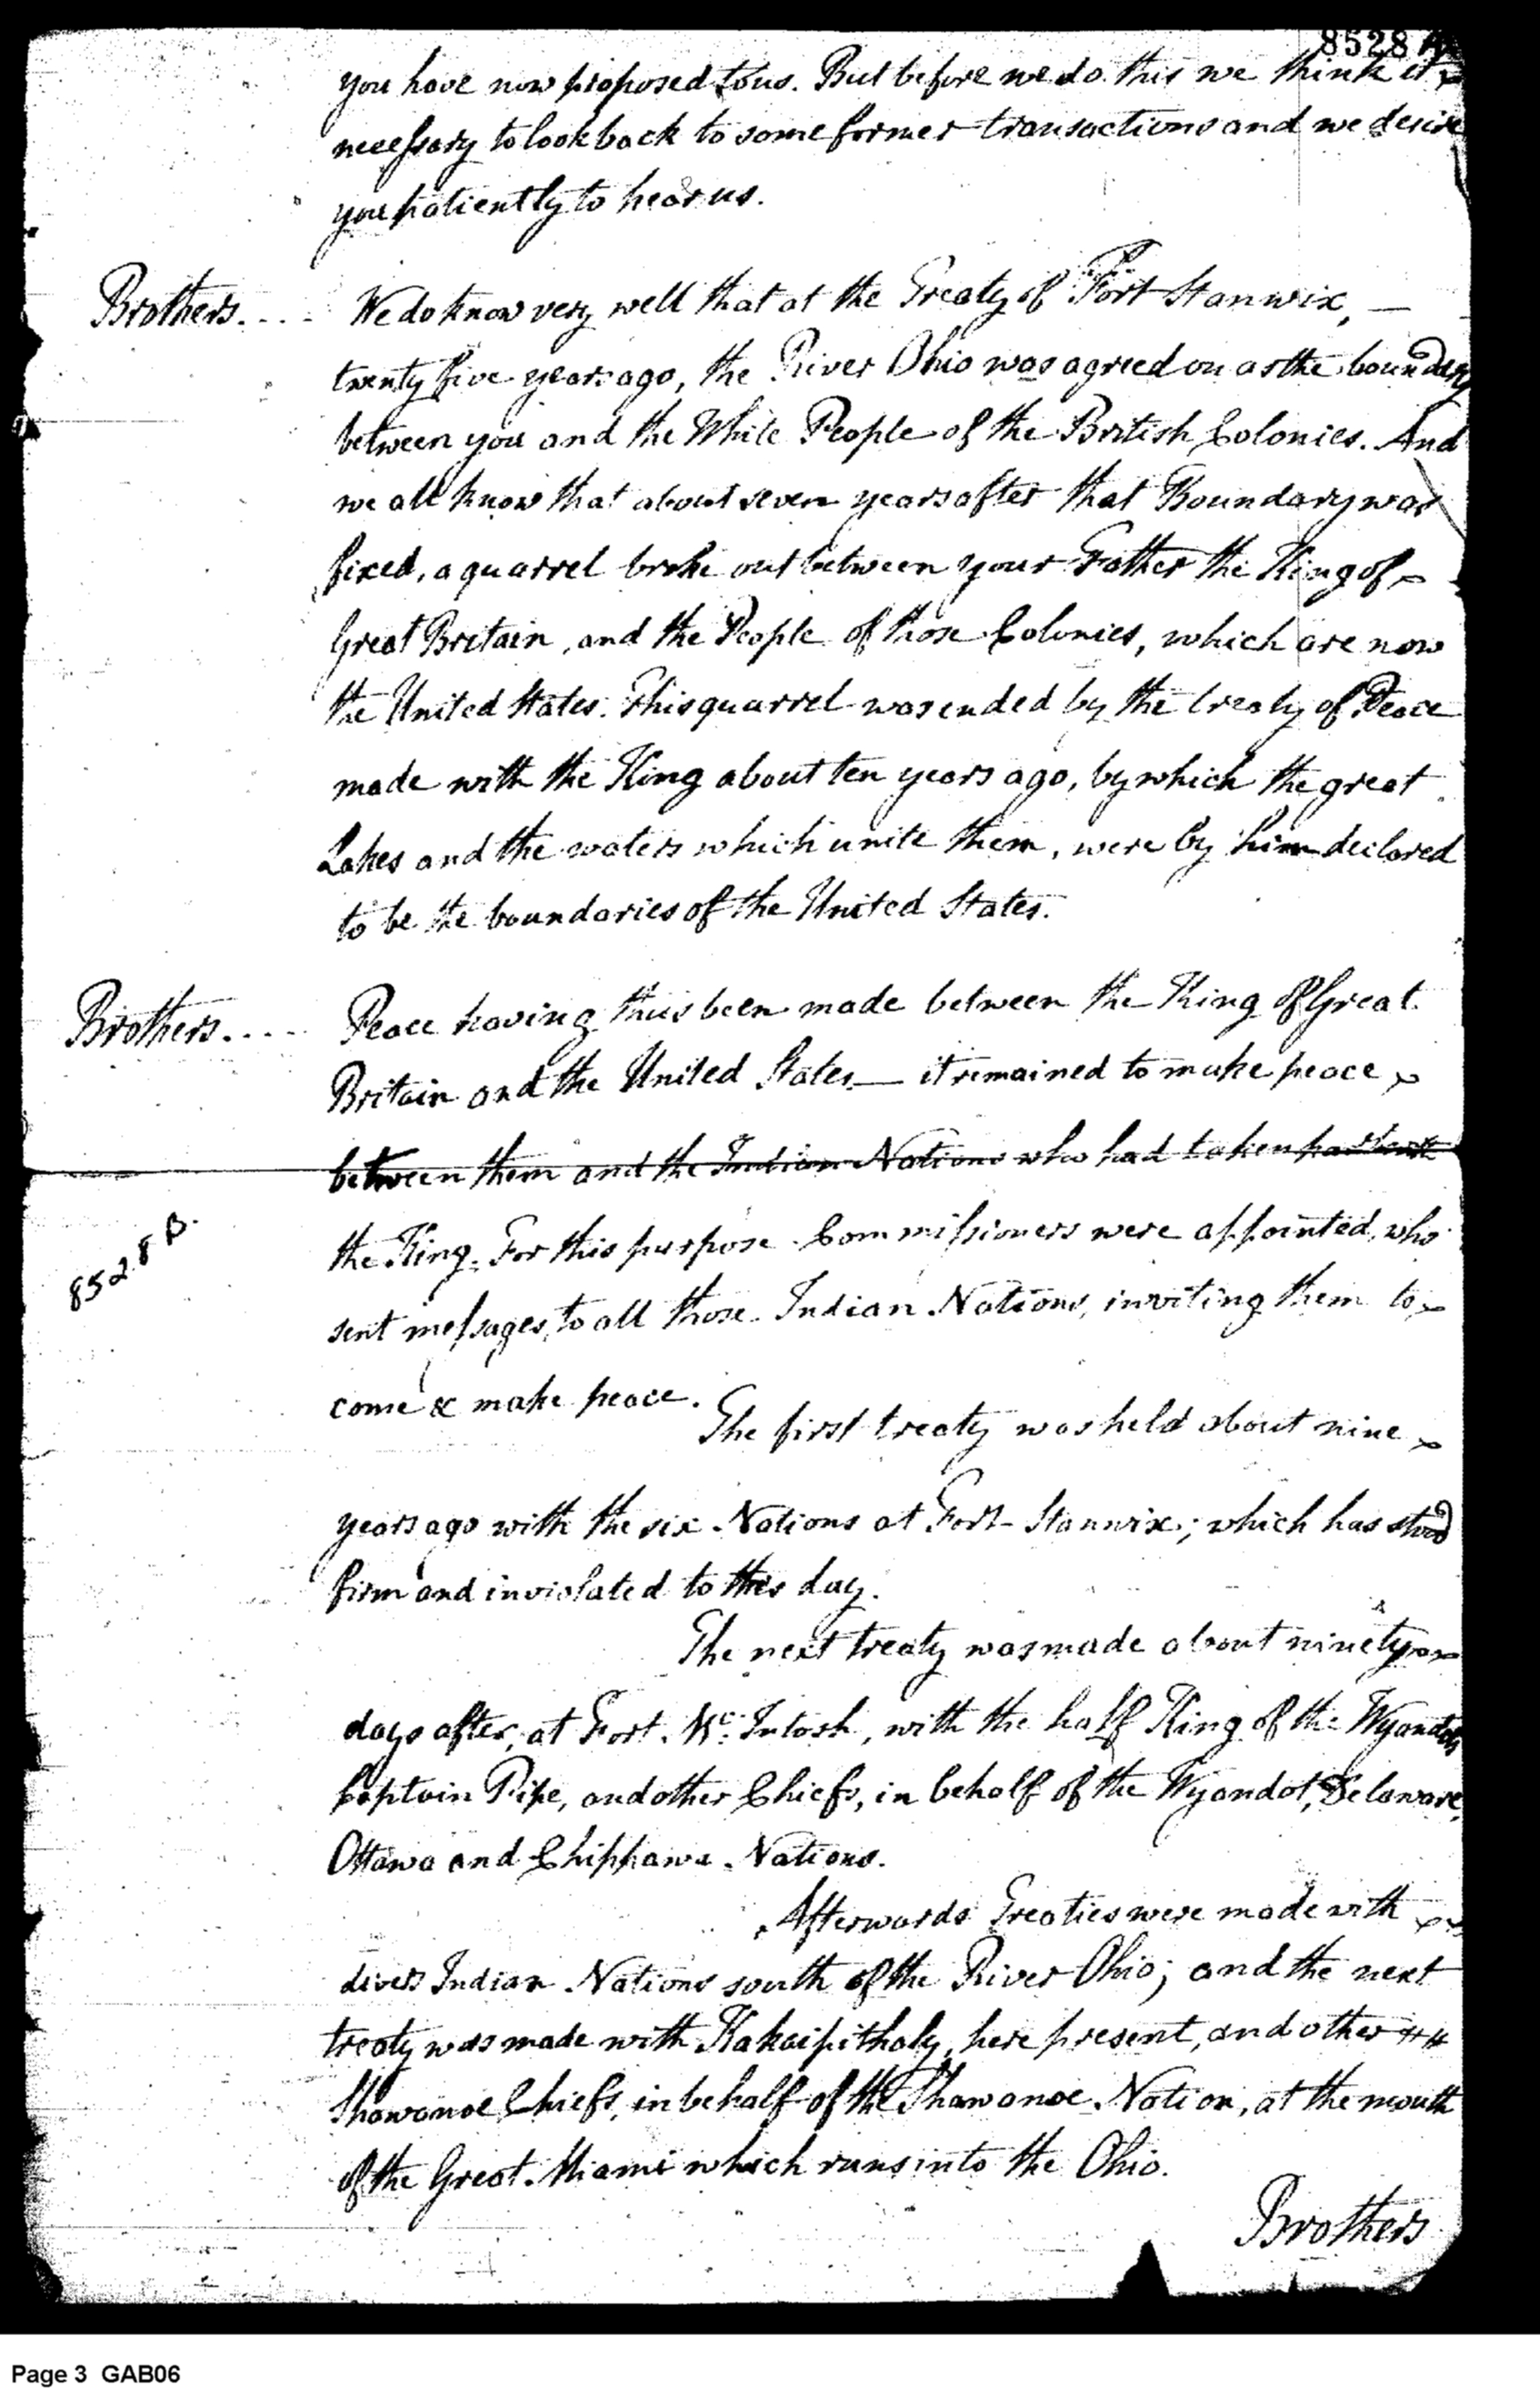 8528 A
you have now proposed to us. But before we do this we think it
necessary to look back to some former transactions and we desire
you patiently to hear us.
Brothers.... We do know very well that at the Treaty of Fort Stanwix,—
twenty five years ago, the River Ohio was agreed on as the boundary
between you and the White People of the British Colonies. And
we all know that about seven years after that Boundary was
fixed, a quarrel broke out between your Father the King of
Great Britain, and the People of those Colonies, which are now
the United States. This quarrel was ended by the treaty of Peace
made with the King about ten years ago, by which the great
Lakes and the waters which unite them, were by him declared
to be the boundaries of the United States.
Brothers.... Peace having thus been made between the King of Great
Britain and the United States— it remained to make peace
between them and the Indian Nations who had taken part with
8528 B.
the King. For this purpose Commissioners were appointed, who
sent messages, to all those Indian Nations, inviting them to
come & make peace.
The first treaty was held about nine
years ago with the six Nations at Fort Stanwix; which has stood
firm and inviolated to this day.
The next treaty was made about ninety
days after, at Fort Mc. Intosh, with the half King of the Wyandots
Captain Pipe, and other Chiefs, in behalf of the Wyandot, Delaware,
Ottawa and Chippawa Nations.
Afterwards Treaties were made with
divers Indian Nations south of the River Ohio; and the next
treaty was made with Kakaipithaly, here present, and other
Shawanoe Chiefs, in behalf of the Shawanoe Nation, at the mouth
of the Great Miami which runs into the Ohio.
Brothers
Page 3 GAB06